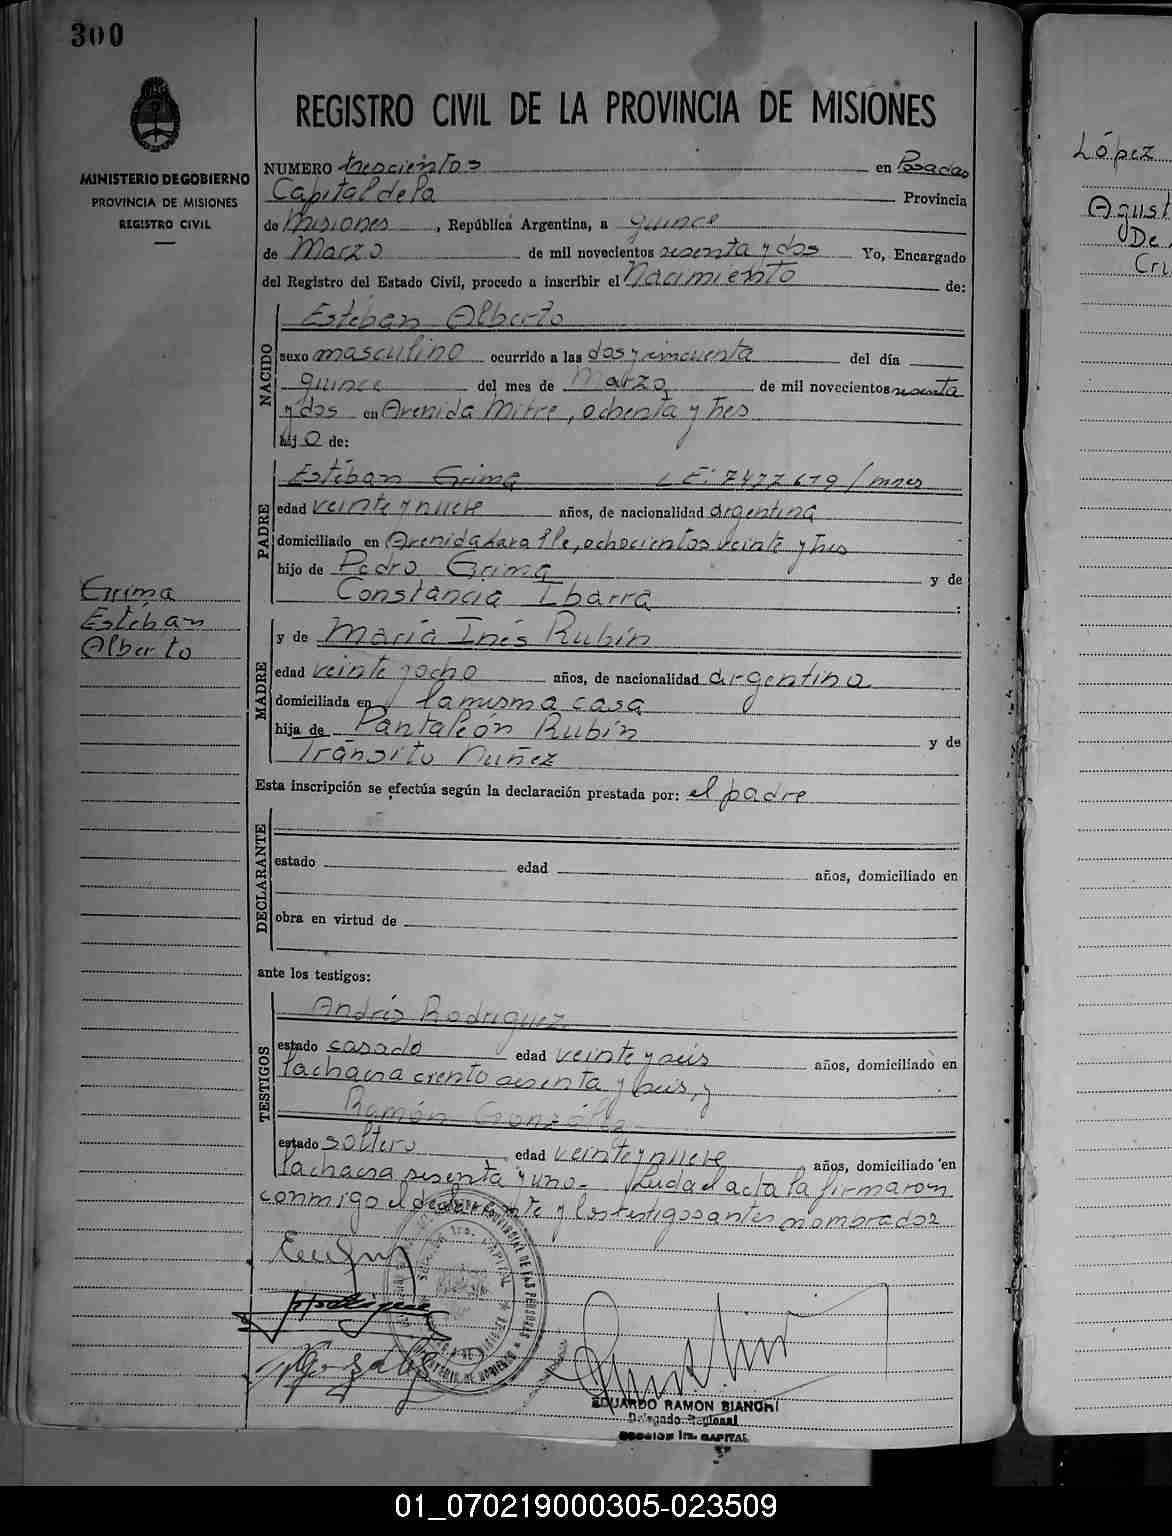 300
MINISTERIO DE GOBIERNO
PROVINCIA DE MISIONES
REGISTRO CIVIL
Grima
Esteban
Alberto
REGISTRO CIVIL DE LA PROVINCIA DE MISIONES
NUMERO trescientos en Posadas
Capital de la Provincia
de Misiones, República Argentina, a quince
de Marzo de mil novecientos sesenta y dos Yo, Encargado
del Registro del Estado Civil, procedo a inscribir el Nacimiento de:
NACIDO
Esteban Alberto
sexo masculino ocurrido a las dos y cincuenta del día
quince del mes de Marzo de mil novecientos sesenta
y dos en Avenida Mitre, ochenta y tres
hijo de:
PADRE
Esteban Grima L.E: 7477679/mnes
edad veinte y nueve años, de nacionalidad argentina
domiciliado en Avenida Lavalle, ochocientos veinte y tres
hijo de Pedro Grima y de
Constancia Ibarra :
MADRE
y de María Inés Rubín
edad veinte y ocho años, de nacionalidad argentina
domiciliada en la misma casa
hija de Pantaleón Rubín y de
Tránsito Nuñez
Esta inscripción se efectúa según la declaración prestada por: el padre
DECLARANTE
estado edad años, domiciliado en
obra en virtud de
ante los testigos:
TESTIGOS
Andrés Rodriguez
estado casado edad veinte y seis años, domiciliado en
la chacra ciento sesenta y seis, y
Ramón González
estado soltero edad veinte y nueve años, domiciliado en
la chacra sesenta y uno.- Leída el acta la firmaron
conmigo el declarante y los testigos antes nombrados
EDUARDO RAMON BIANCHI
Delegado Regional
SECCION 1ra. CAPITAL
López
Agust
De
Cru
01_070219000305-023509